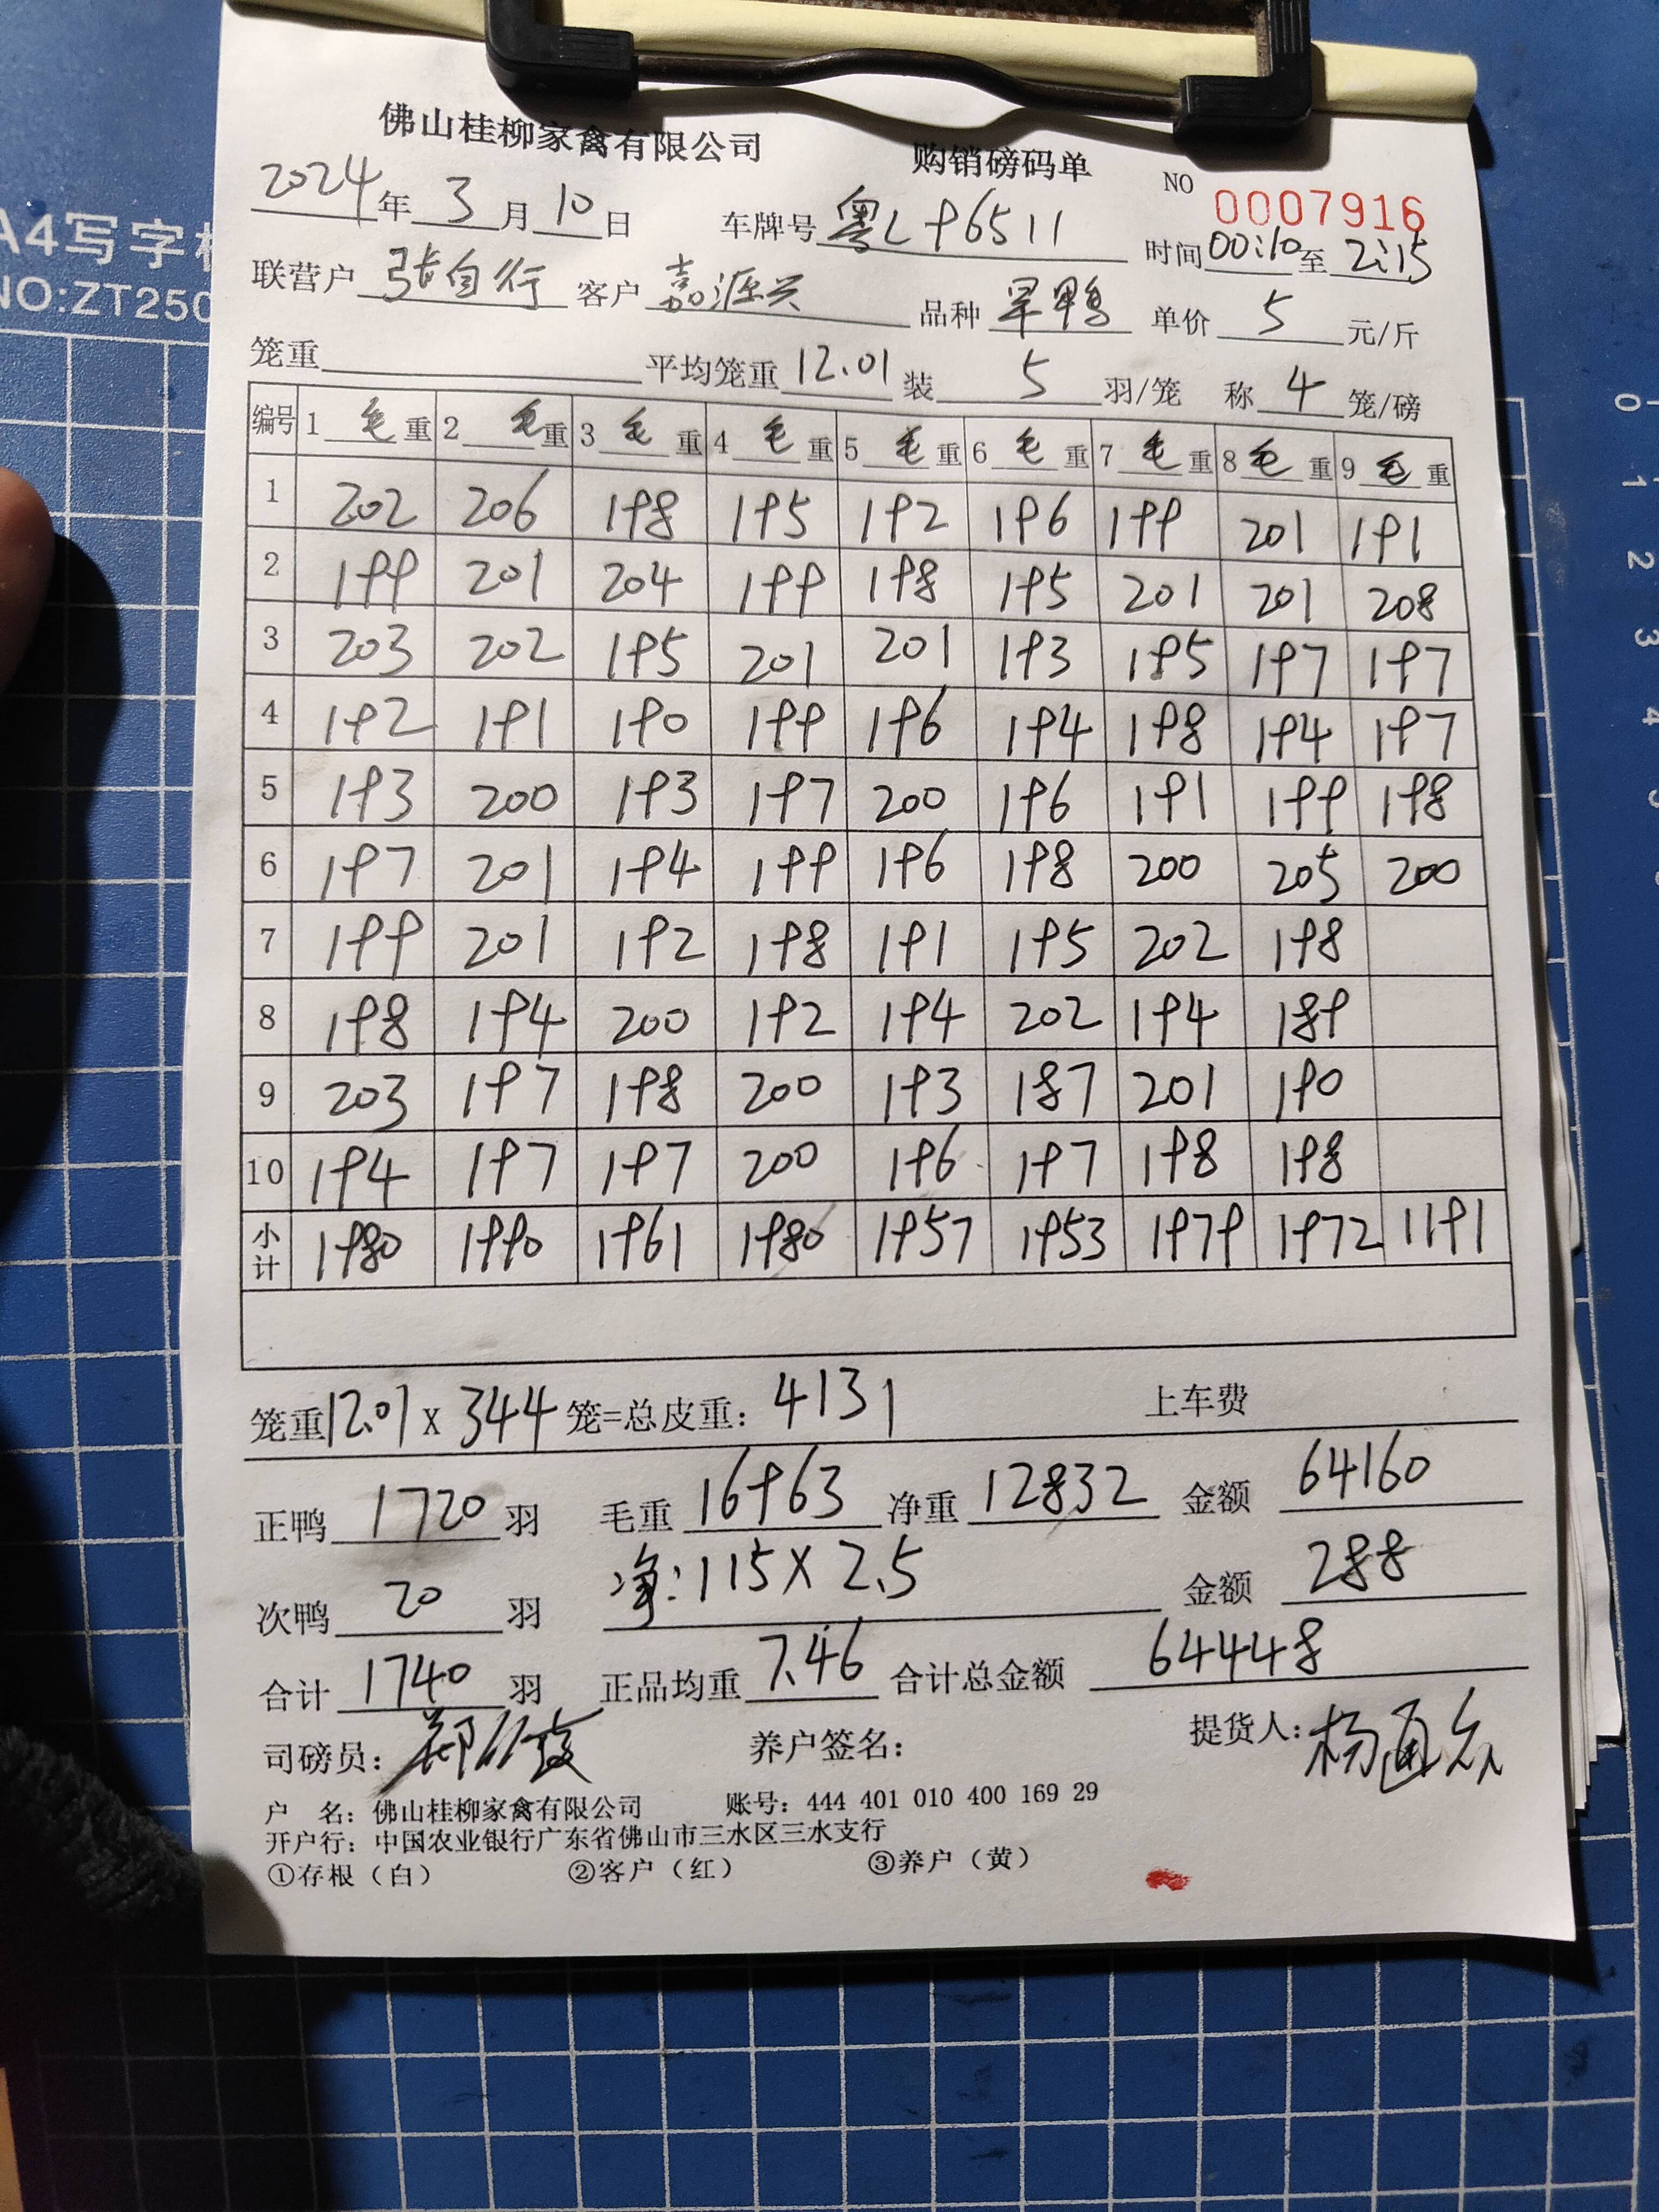 佛山桂柳家禽有限公司 购销磅码单 NO 0007916
2024年3月10日 车牌号 粤L96511 时间00:10至2:15
A4写字
NO:ZT250
联营户 张自行 客户 嘉源兴 品种 旱鸭 单价 5 元/斤
笼重 平均笼重 12.01 装 5 羽/笼 称 4 笼/磅
编号 1 毛重 2 毛重 3 毛重 4 毛重 5 毛重 6 毛重 7 毛重 8 毛重 9 毛重
1 202 206 198 195 192 196 199 201 191
2 199 201 204 199 198 195 201 201 208
3 203 202 195 201 201 193 195 197 197
4 192 191 190 199 196 194 198 194 197
5 193 200 193 197 200 196 191 199 198
6 197 201 194 199 196 198 200 205 200
7 199 201 192 198 191 195 202 198
8 198 194 200 192 194 202 194 189
9 203 197 198 200 193 187 201 190
10 194 197 197 200 196 197 198 198
小计 1980 1990 1961 1980 1957 1953 1979 1972 1191
笼重12.01 X 344 笼=总皮重: 4131 上车费
正鸭 1720 羽 毛重 16963 净重 12832 金额 64160
次鸭 20 羽 净:115X2.5 金额 288
合计 1740 羽 正品均重 7.46 合计总金额 64448
司磅员: 养户签名: 提货人: 杨通众
户 名: 佛山桂柳家禽有限公司 账号: 444 401 010 400 169 29
开户行: 中国农业银行广东省佛山市三水区三水支行
①存根(白) ②客户(红) ③养户(黄)
0
1
2
3
4
5